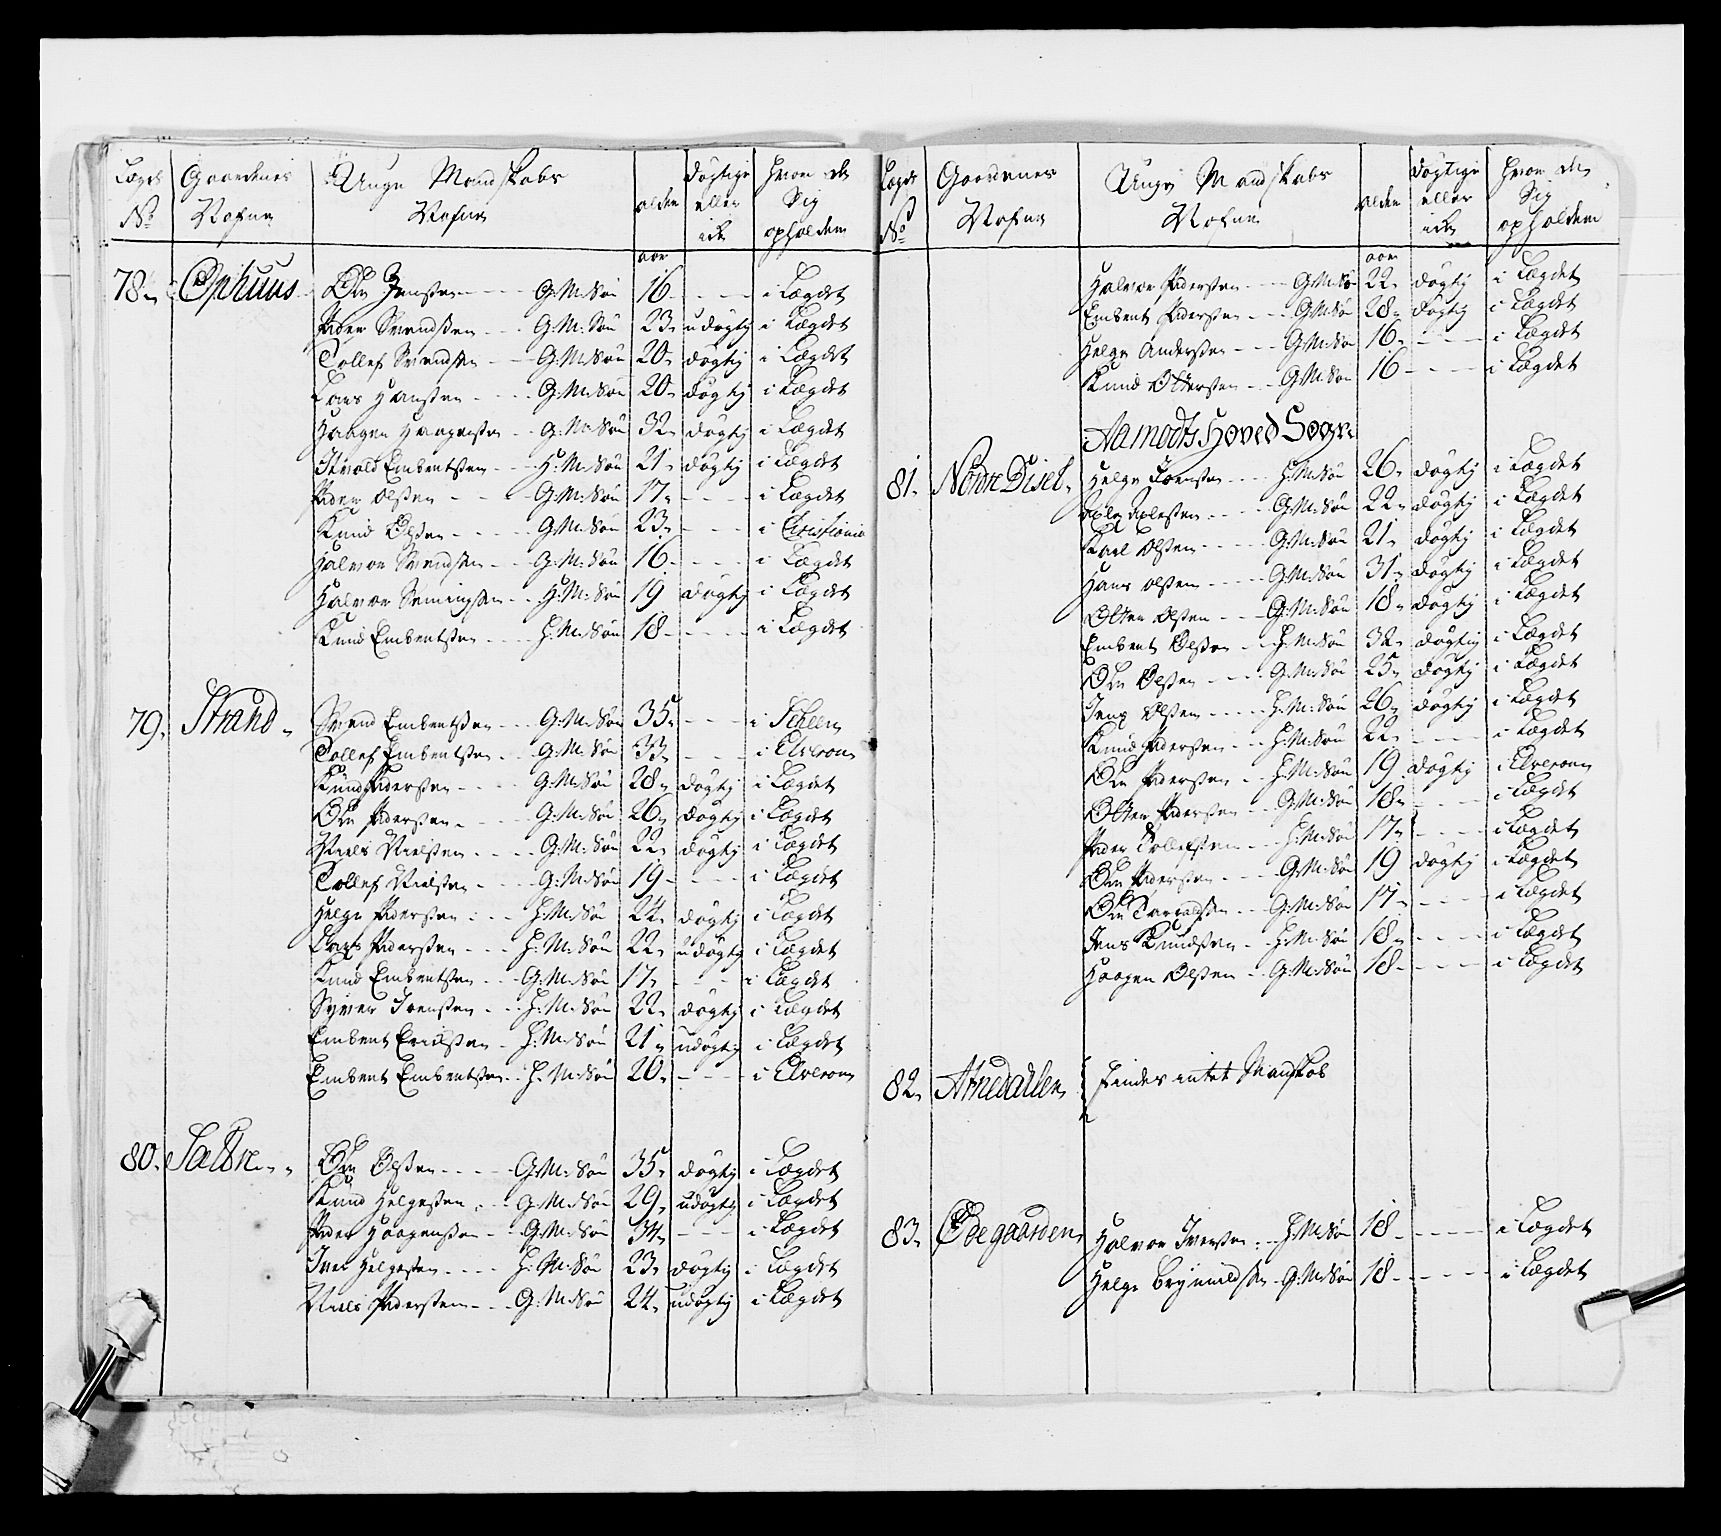 Lægds No | Gaardenes Nafne | Unge Mandskabs Nafne | alder | døgtige eller icke | hvor de Sig opholdem
aar
78. Ophuus Ole Jensen - - - G:M:Søn 16 - - - i Lægdet
Peder Svendsen - - G:M:Søn 23 udøgtig i Lægdet
Tollef Svendsen - - G:M:Søn 20 døgtig i Lægdet
Lars Hansen - - - G:M:Søn 20 døgtig i Lægdet
Haagen Haagensen - - G:M:Søn 32 døgtig i Lægdet
Embretsen - - H:M:Søn 21 døgtig i Lægdet
Peder Olsen - - - G:M:Søn 17 - - - i Lægdet
Knud Olsen - - - G:M:Søn 23 - - - i Christiania
Halvor Svendsen - - G:M:Søn 16 - - - i Lægdet
Halvor Semingsen - - H:M:Søn 19 døgtig i Lægdet
Knud Embretsen - - H:M:Søn 18 - - - i Lægdet
79. Strand Svend Embretsen - - G:M:Søn 35 - - - i Scheen
Tollef Embretsen - - G:M:Søn 33 - - - i Elverom
Knud Pedersen - - - G:M:Søn 28 døgtig i Lægdet
Ole Pedersen - - - G:M:Søn 26 døgtig i Lægdet
Niels Nielsen - - - G:M:Søn 22 døgtig i Lægdet
Tollef Nielsen - - - G:M:Søn 19 - - - i Lægdet
Helge Pedersen - - - H:M:Søn 24 døgtig i Lægdet
Lars Pedersen - - - H:M:Søn 22 udøgtig i Lægdet
Knud Embretsen - - G:M:Søn 17 - - - i Lægdet
Syver Iversen - - H:M:Søn 22 døgtig i Lægdet
Embret Ericksen - H:M:Søn 21 udøgtig i Lægdet
Embret Embretsen - - H:M:Søn 20 - - - i Elverom
80. Sætre Ole Olsen - - - G:M:Søn 35 døgtig i Lægdet
Knud Helgesen - - G:M:Søn 29 udøgtig i Lægdet
Peder Haagensen - - G:M:Søn 34 - - - i Lægdet
Iver Helgesen - - - H:M:Søn 23 døgtig i Lægdet
Niels Pedersen - - - G:M:Søn 24 udøgtig i Lægdet
Lægds No | Gaardenes Nafne | Unge Mandskabs Nafne | alder | døgtige eller icke | hvor de Sig opholdem
aar
Halvor Pedersen - - - G:M:Sø 22 døgtig i Lægdet
Embret Pedersen - - G:M:Sø 28 døgtig i Lægdet
Helge Andersen - - - G:M:Søn 16 - - - i Lægdet
Knud Ottersen - - - G:M:Søn 16 - - - i Lægdet
Aamodts Hoved Sogn
81. Nordre Diset Helge Iversen - - - H:M:Søn 26 døgtig i Lægdet
- - - G:M:Søn 22 døgtig i Lægdet
Karl Olsen - - - G:M:Søn 21 døgtig i Lægdet
Hans Olsen - - - G:M:Søn 31 døgtig i Lægdet
Otter Olsen - - - G:M:Søn 18 døgtig i Lægdet
Embret Olsen - - H:M:Søn 32 døgtig i Lægdet
Ole Olsen - - - G:M:Søn 25 døgtig i Lægdet
Olsen - - - H:M:Søn 26 døgtig i Lægdet
Knud Pedersen - - - H:M:Søn 22 - - - i Lægdet
Ole Pedersen - - H:M:Søn 19 døgtig i Elverom
Otter Pedersen - - G:M:Søn 18 - - - i Lægdet
Peder Tollefsen - - - H:M:Søn 17 - - - i Lægdet
Ole Pedersen - - - G:M:Søn 19 døgtig i Lægdet
Ole - - G:M:Søn 17 - - - i Lægdet
Jens Knudsen - - H:M:Søn 18 - - - i Lægdet
Haagen Olsen - - G:M:Søn 18 - - - i Lægdet
82. Arnedahlen findes intet Mandskab
83. Ødegaarden Halvor Iversen - - H:M:Søn 18 - - - i Lægdet
Helge Brynnildsen - G:M:Søn 18 - - - i Lægdet